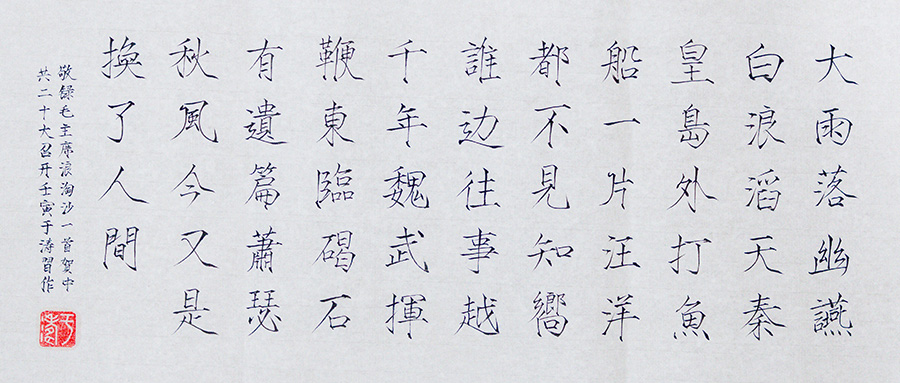 大雨落幽讌
白浪滔天秦
皇島外打魚
船一片汪洋
都不見知嚮
誰边往事越
千年魏武揮
鞭東臨碣石
有遺篇蕭瑟
秋風今又是
換了人間
敬録毛主席浪淘沙一首贺中
共二十大召开壬寅于涛習作